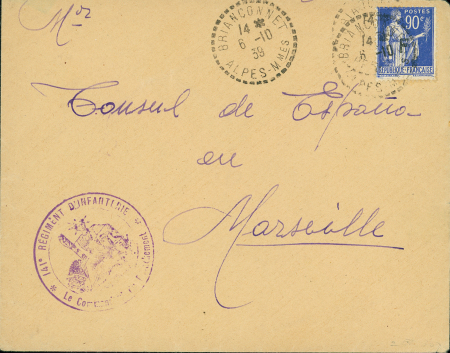 Mor
BRIANCONNET
14 *
6 -10
39
ALPES-Mmes
POSTES
90c
REPUBLIQUE FRANÇAISE
Consul de España
en
Marseille
141e REGIMENT D'INFANTERIE
* Le Commandant